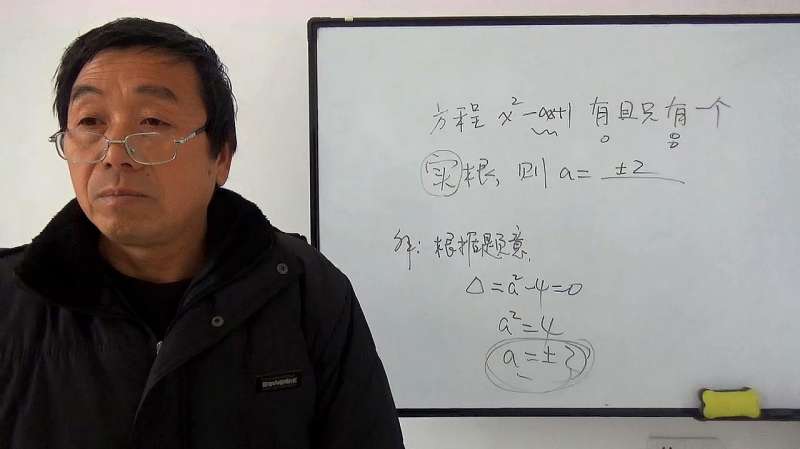 方程 x²-ax+1 有且只有一个
实根, 则 a= ±2
解: 根据题意,
△=a²-4=0
a²=4
a=±2